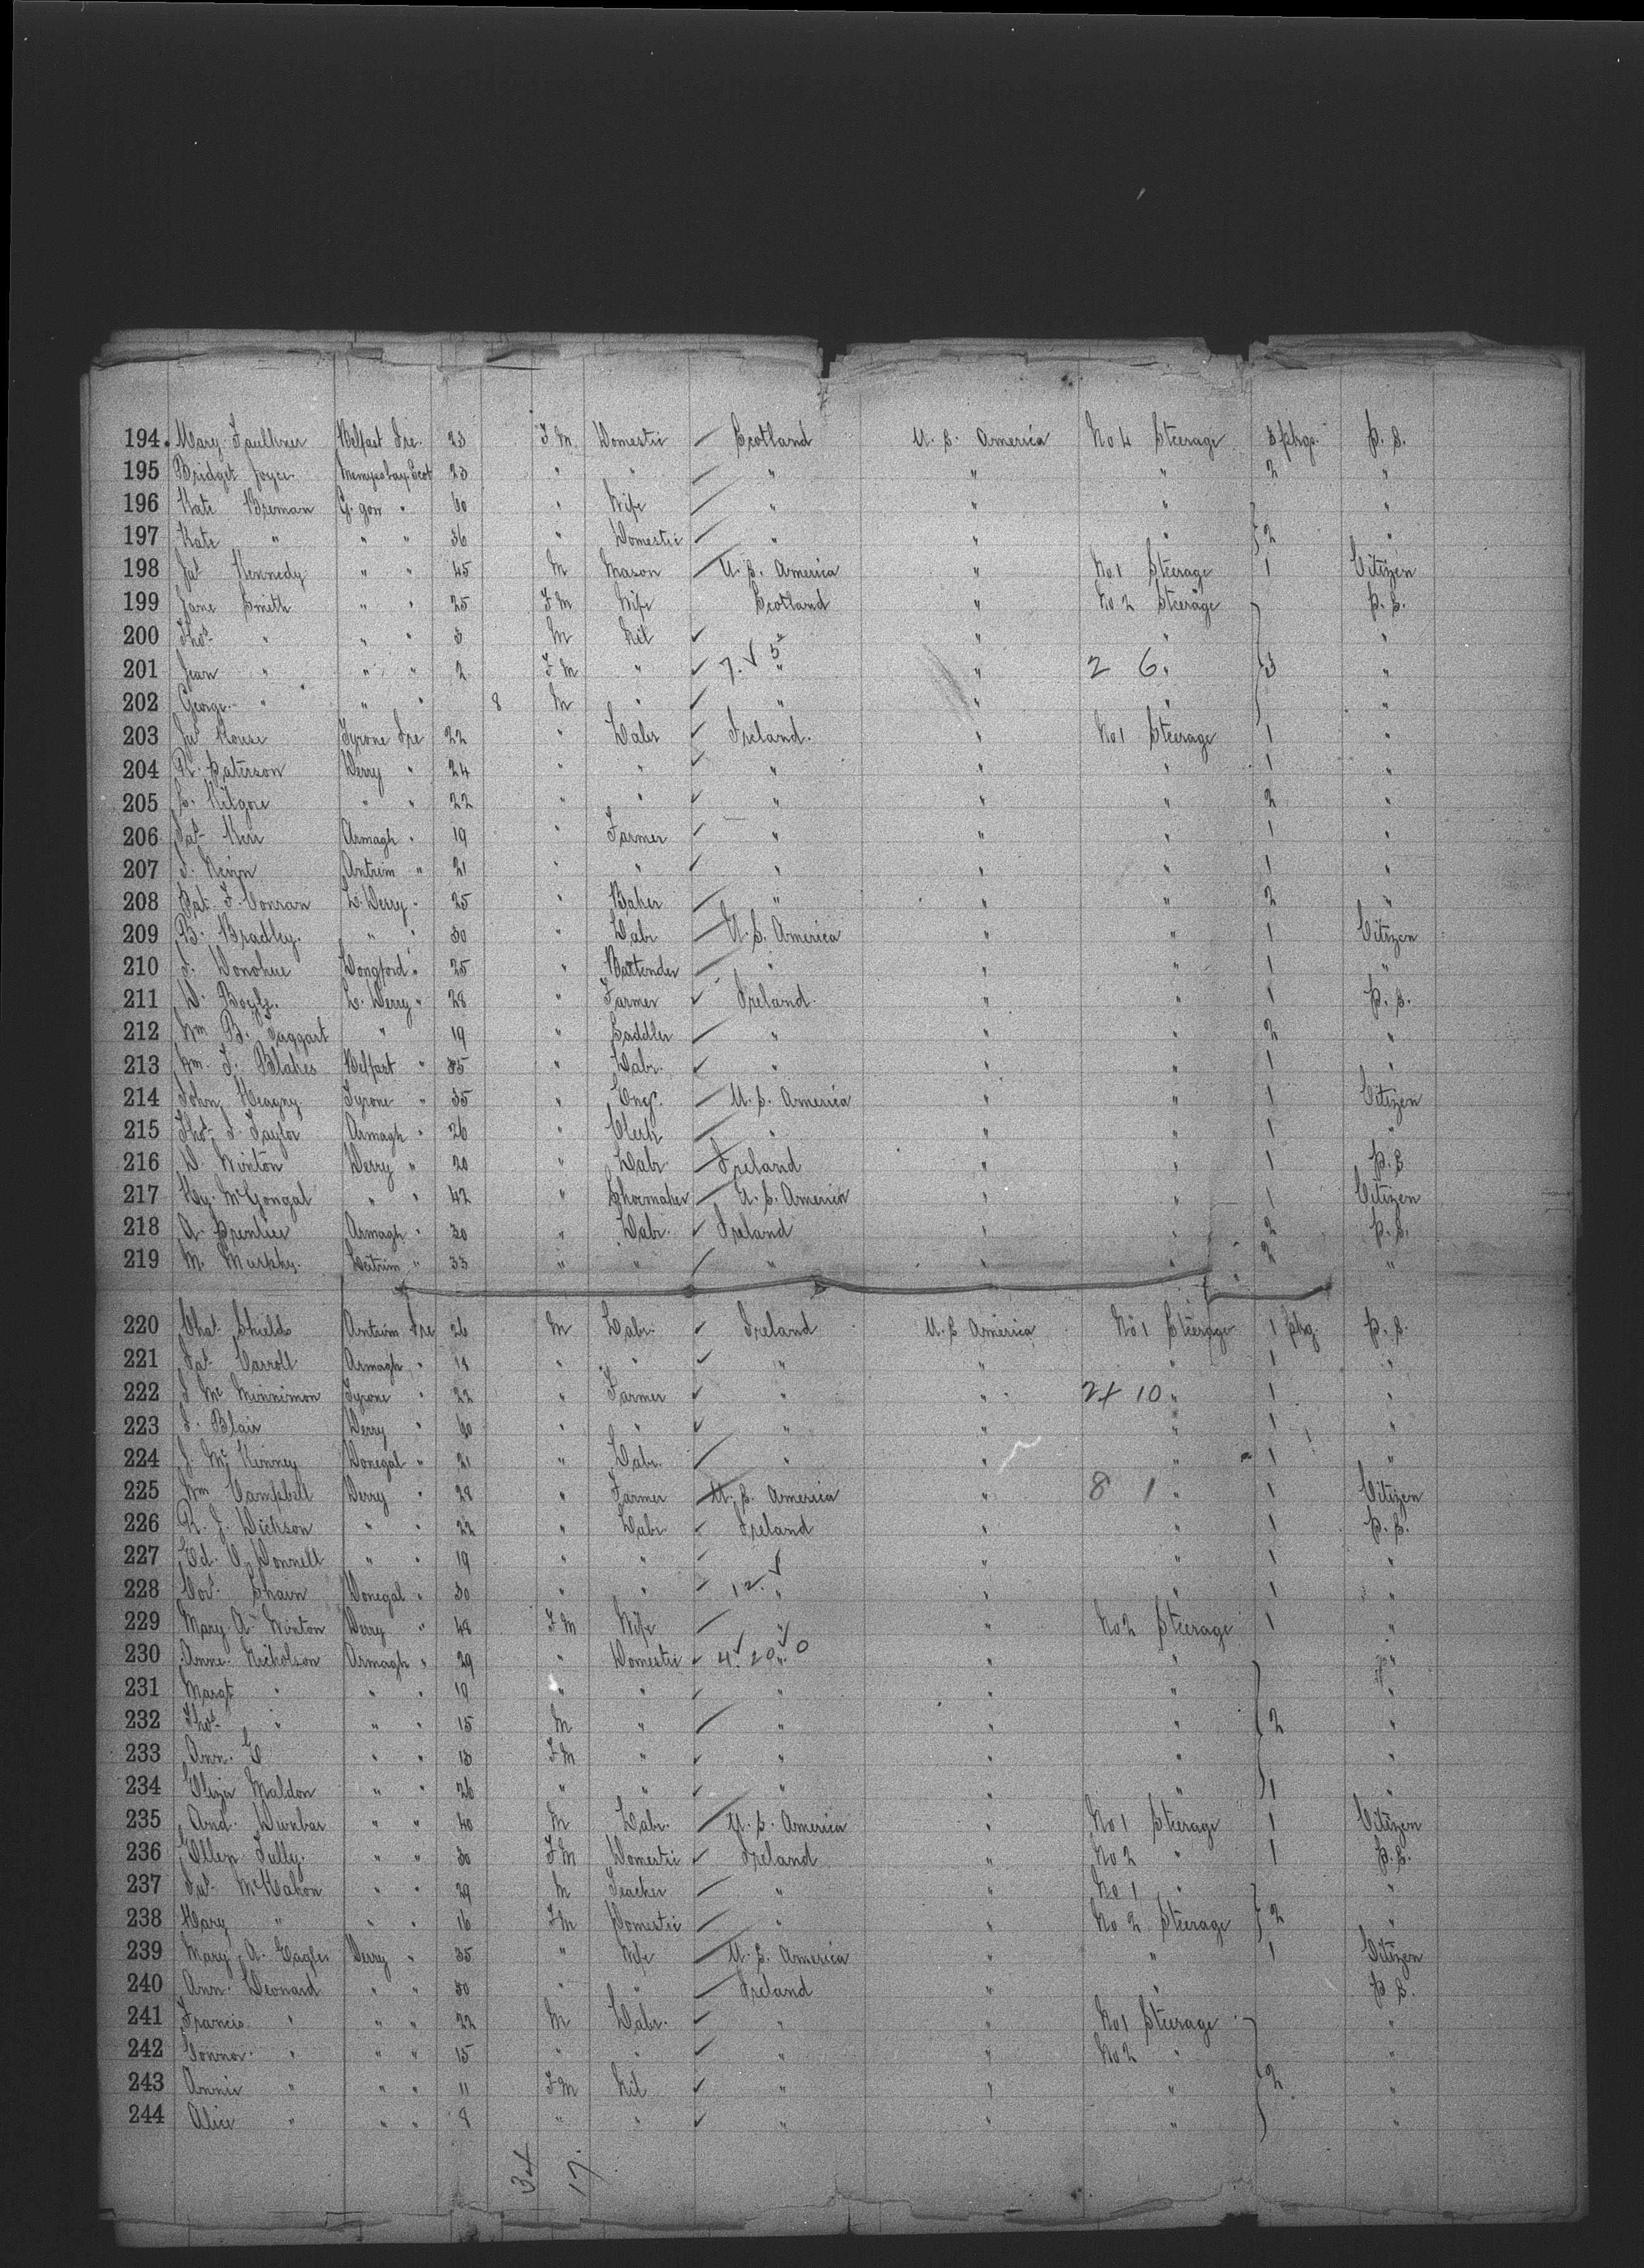 194 Mary Faulkner Belfast Ire. 23 F M Domestic Scotland U. S. America No 4 Steerage 3 pkgs. P. S.
195 Bridget Joyce 23 " " " " " 2 "
196 Kate Breman G. gow " 30 " Wife " " " "
197 Kate " " " 36 " Domestic " " " 2 "
198 Jas Kennedy " " 45 M Mason U. S. America " No 1 Steerage 1 Citizen
199 Jane Smith " " 25 F M Wife Scotland " No 2 Steerage P. S.
200 Thos. " " " 3 M Nil " " "
201 Jean " " " 2 F M " 7. 5 " " 2 6 " 3 "
202 George " " " 8 M " " " " "
203 Jas House Tyrone Ire 22 " Labr Ireland. " No 1 Steerage 1 "
204 R. Paterson Derry " 24 " " " " " 1 "
205 S. Kilgore " " 22 " " " " " 2 "
206 Pat Kerr Armagh " 19 " Farmer " " " 1 "
207 Antrim " 21 " " " " " 1 "
208 Pat. F. Conran L. Derry " 25 " Baker " " " 2 "
209 B. Bradley. " " 30 " Labr U. S. America " " 1 Citizen
210 Donohue Longford " 25 " Bartender " " " 1 "
211 D. Boyle. L. Derry " 28 " Farmer Ireland. " " 1 P. S.
212 Wm B. Taggart " 19 " Saddler " " " 2 "
213 Wm. J. Blakes Belfast " 35 " Labr. " " " 1 "
214 John Heagny Tyrone " 35 " Engr. U. S. America " " 1 Citizen
215 Thos. J. Taylor Armagh " 26 " Clerk " " " 1 "
216 D. Winton Derry " 20 " Labr. Ireland " " 1 P. S
217 Hy. McGongal " " 42 " Shoemaker U. S. America " " 1 Citizen
218 A. Prentice Armagh " 30 " Labr. Ireland " " 2 P. S.
219 M. Murphy. Leitrim " 33 " " " " " 2 "
220 Chas. Shields Antrim Ire 26 M Labr. Ireland U. S America No 1 Steerage 1 pkg. P. S.
221 Pat Carroll Armagh " 18 " " " " " 1 "
222 J Mc Minnimon Tyrone " 22 " Farmer " " 2 10 " 1 "
223 Blair Derry " 60 " " " " " 1 "
224 J. McKinney Donegal " 21 " Labr. " " " 1 "
225 Wm Campbell Derry " 28 " Farmer U. S. America " 8 1 " 1 Citizen
226 R. J. Dickson " " 22 " Labr. Ireland " " 1 P. S.
227 Ed. O Donnell " " 19 " " " " " 1 "
228 Donegal " 30 " " 12. " " " 1 "
229 Mary A. Winton Derry " 48 F M Wife " " No 2 Steerage 1 "
230 Anne. Nicholson Armagh " 29 " Domestic 4. 20 0 " " " "
231 Margt " " " 19 " " " " " "
232 Thos. " " " 15 M " " " " 2 "
233 Ann. E " " 13 F M " " " " "
234 Eliza Maldon " " 26 " " " " " 1 "
235 And. Dunbar " " 40 M Labr. U. S. America " No 1 Steerage 1 Citizen
236 Ellen Tully. " " 30 F M Domestic Ireland " No 2 " 1 P. S.
237 McMahon " " 29 M Teacher " " No 1 " "
238 Mary " " " 16 F M Domestic " " No 2 Steerage 2 "
239 Mary A. Eagles Derry " 35 " Wife U. S. America " " 1 Citizen
240 Ann. Leonard " " 30 " " Ireland " " P S.
241 Francis " " " 22 M Labr. " " No 1 Steerage "
242 Connor " " " 15 " " " " No 2 " "
243 Annie " " " 11 F M Nil " " " 2 "
244 Alice " " " 8 " " " " " "
17.